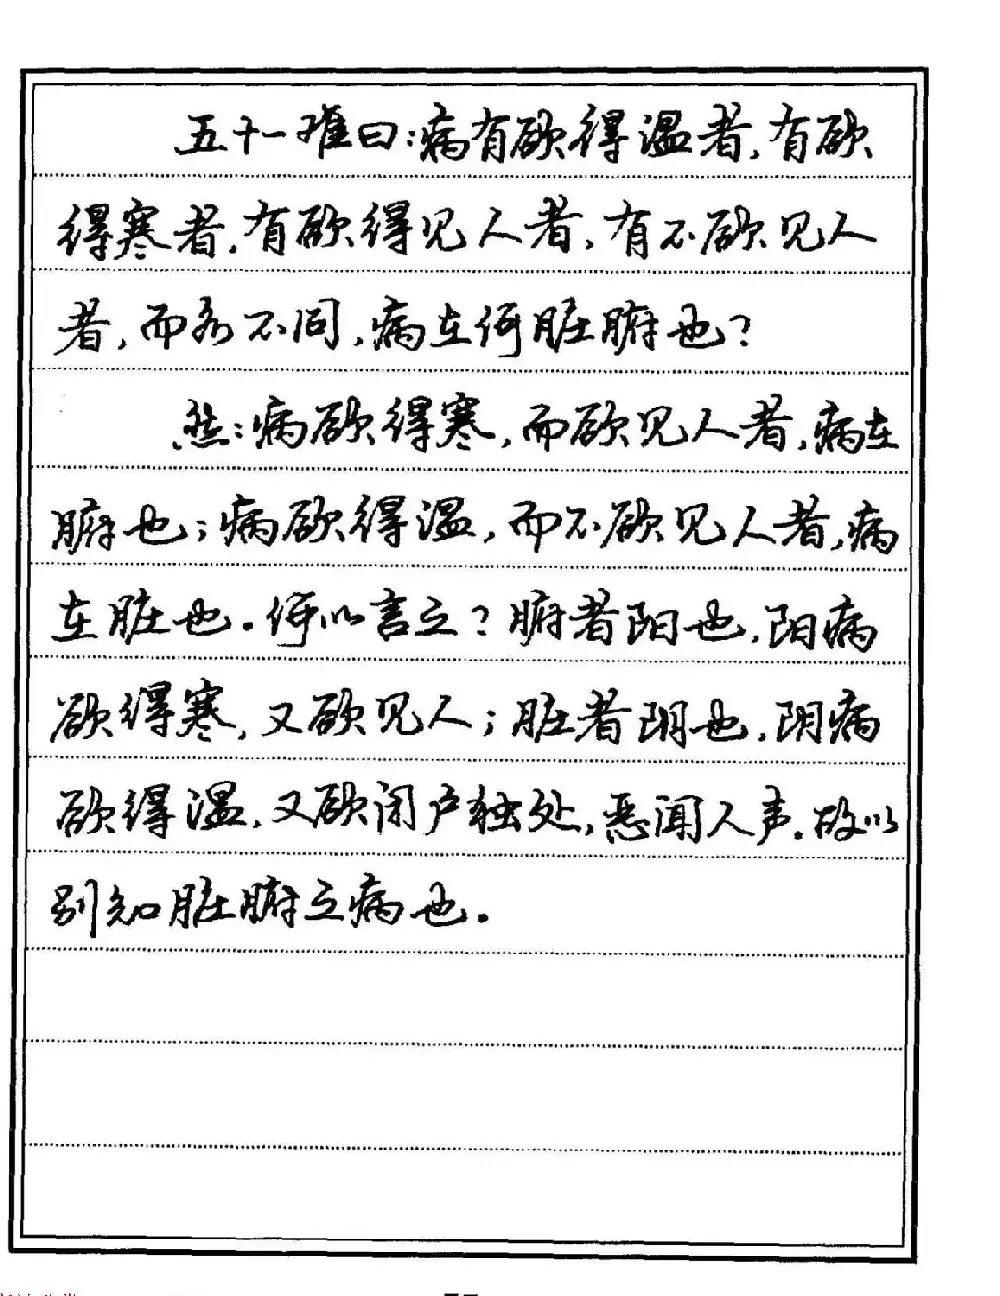 五十一难曰：病有欲得温者，有欲
得寒者，有欲得见人者，有不欲见人
者，而各不同，病在何脏腑也？
然：病欲得寒，而欲见人者，病在
腑也；病欲得温，而不欲见人者，病
在脏也。何以言之？腑者阳也，阳病
欲得寒，又欲见人；脏者阴也，阴病
欲得温，又欲闭户独处，恶闻人声。故以
别知脏腑之病也。